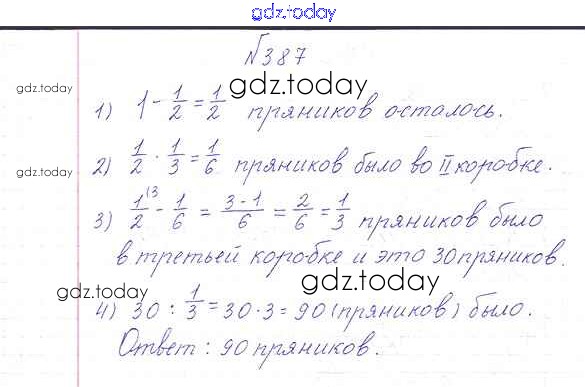 gdz.today
№387
gdz.today
gdz.today
1) 1 - 1/2 = 1/2 пряников осталось.
gdz.today
2) 1/2 · 1/3 = 1/6 пряников было во II коробке.
3) 1/2 (3 - 1/6 = 3-1/6 = 2/6 = 1/3 пряников было
в третьей коробке и это 30 пряников.
gdz.today
gdz.today
4) 30 : 1/3 = 30·3 = 90 (пряников) было.
Ответ: 90 пряников.